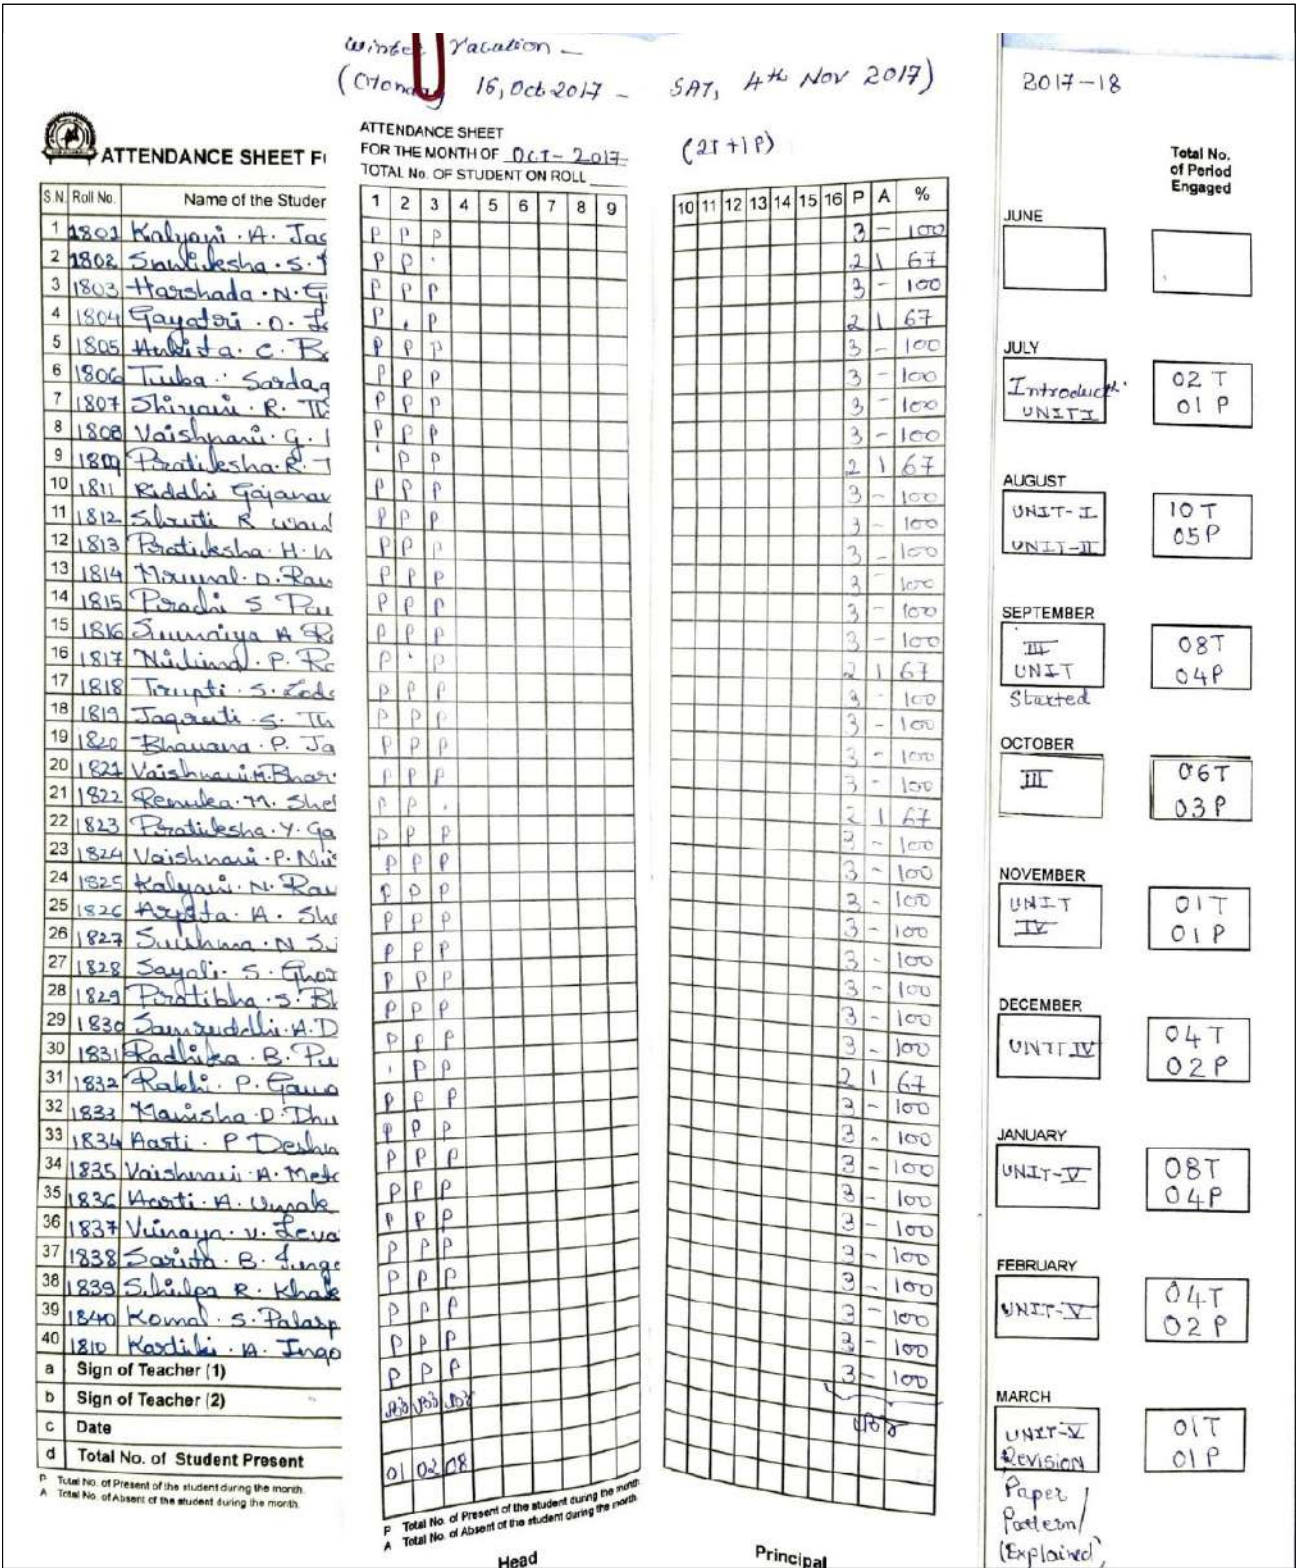 Winter Vacation -
(Monday 16, Oct 2017 - SAT, 4th Nov 2017)
2017-18
ATTENDANCE SHEET F
ATTENDANCE SHEET
FOR THE MONTH OF OCT - 2017
TOTAL No. OF STUDENT ON ROLL
(2T + 1P)
S.N. Roll No. Name of the Studen 1 2 3 4 5 6 7 8 9 10 11 12 13 14 15 16 P A %
1 1801 Kalyani . A. Jag P P P 3 - 100
2 1802 S. P P . 2 1 67
3 1803 Harshada . N. G P P P 3 - 100
4 1804 Gayatri . D. P . P 2 1 67
5 1805 Ankita. C. B P P P 3 - 100
6 1806 Tuba. Sardag P P P 3 - 100
7 1807 Shivani. R. P P P 3 - 100
8 1808 Vaishnavi. G. P P P 3 - 100
9 1809 Pratiksha. R. . P P 2 1 67
10 1811 Riddhi Gajanan P P P 3 - 100
11 1812 Shruti R P P P 3 - 100
12 1813 Pratiksha. H. P P P 3 - 100
13 1814 Mrunal. D. Rau P P P 3 - 100
14 1815 Prachi S P P P 3 - 100
15 1816 Sumaiya A R P P P 3 - 100
16 1817 P. P . P 2 1 67
17 1818 Trupti. S. P P P 3 - 100
18 1819 Jagruti. S. Th P P P 3 - 100
19 1820 Bhavana. P. Ja P P P 3 - 100
20 1821 Vaishnavi. M. Bhar P P P 3 - 100
21 1822 Renuka. M. She P P . 2 1 67
22 1823 Pratiksha. Y. Ga P P P 3 - 100
23 1824 Vaishnavi. P. P P P 3 - 100
24 1825 Kalyani. N. Rau P P P 3 - 100
25 1826 Arpita. A. She P P P 3 - 100
26 1827 Sushma. N P P P 3 - 100
27 1828 Sayali. S. P P P 3 - 100
28 1829 Pratibha. S. B P P P 3 - 100
29 1830 Samruddhi. A. D P P P 3 - 100
30 1831 Radhika. B. . P P 2 1 67
31 1832 Rakhi. P. P P P 3 - 100
32 1833 Manisha. D. Dhu P P P 3 - 100
33 1834 Aarti. P Deshm P P P 3 - 100
34 1835 Vaishnavi. A. P P P 3 - 100
35 1836 Aarti. A. P P P 3 - 100
36 1837 V. P P P 3 - 100
37 1838 Sarita. B. P P P 3 - 100
38 1839 Shilpa R. P P P 3 - 100
39 1840 Komal. S. Palasp P P P 3 - 100
40 1810 Kartiki. A. Ingo P P P 3 - 100
a Sign of Teacher (1)
b Sign of Teacher (2)
c Date
d Total No. of Student Present 01 02 08
P Total No. of Present of the student during the month.
A Total No. of Absent of the student during the month.
P Total No. of Present of the student during the month
A Total No. of Absent of the student during the month.
Head
Principal
Total No.
of Period
Engaged
JUNE
JULY
Introducti
UNIT I
02 T
01 P
AUGUST
UNIT-I
UNIT-II
10 T
05 P
SEPTEMBER
III
UNIT
Started
08T
04P
OCTOBER
III
06T
03P
NOVEMBER
UNIT
IV
01T
01P
DECEMBER
UNIT IV
04T
02P
JANUARY
UNIT-V
08T
04P
FEBRUARY
UNIT-V
04T
02P
MARCH
UNIT-V
Revision
Paper
Pattern
(Explained)
01T
01P